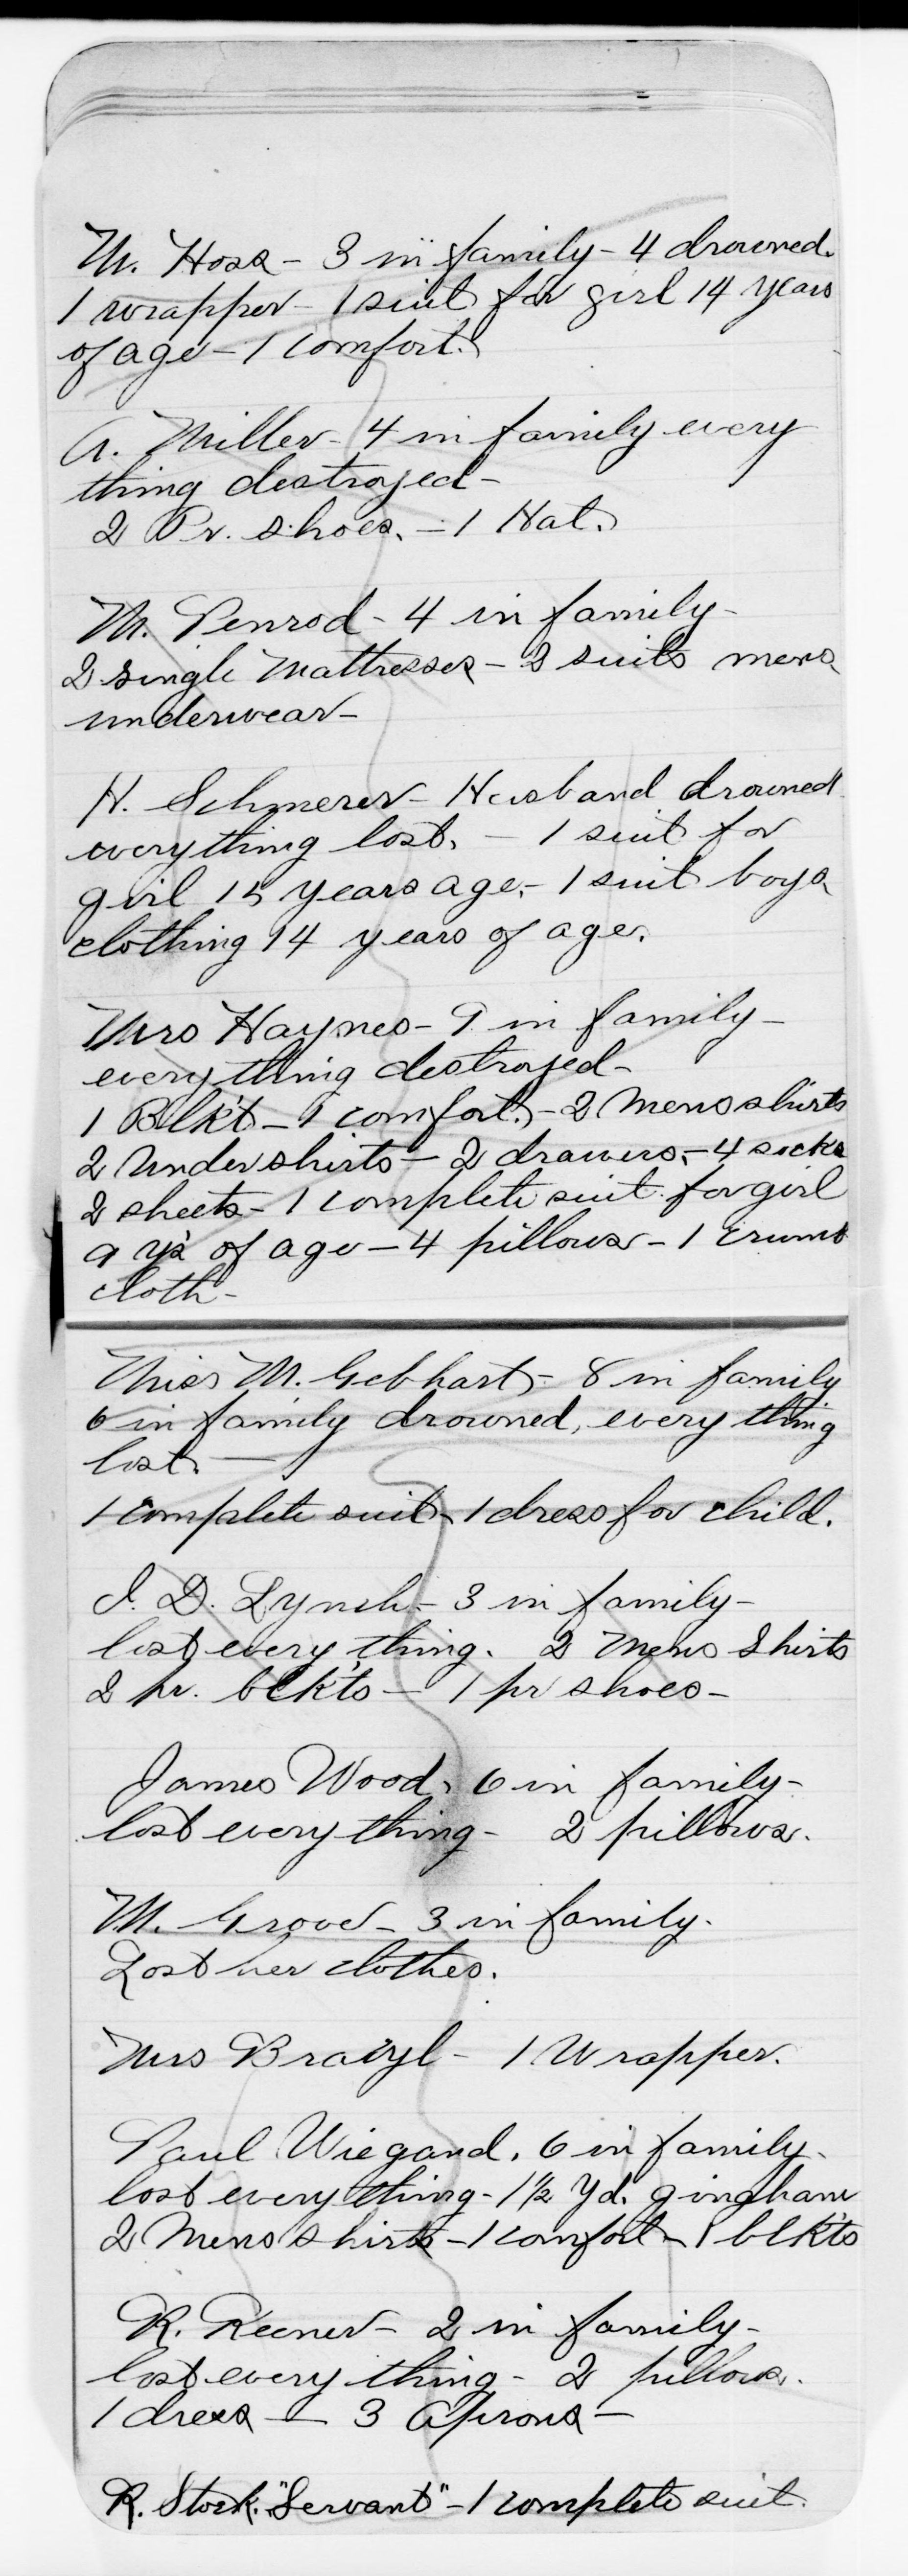 M. Hoss - 3 in family - 4 drowned.
1 wrapper - 1 suit for girl 14 years
of age - 1 comfort.
A. Miller - 4 in family every
thing destroyed -
2 Pr. shoes. - 1 Hat.
M. Penrod - 4 in family -
2 single Mattresses - 2 suits mens
underwear -
H. Schmerer - Husband drowned
everything lost. - 1 suit for
girl 15 years age. - 1 suit boys
clothing 14 years of age.
Mrs Haynes - 9 in family -
everything destroyed -
1 Blk't - 1 comfort. - 2 Mens shirts
2 Undershirts - 2 drawers, - 4 socks
2 sheets - 1 complete suit for girl
9 y's of age - 4 pillows - 1 crumb
cloth -
Miss M. Gebhart - 8 in family
6 in family drowned, every thing
lost. -
1 complete suit - 1 dress for child.
J. D. Lynch - 3 in family -
lost every thing. 2 Mens Shirts
2 pr. blk'ts - 1 pr shoes -
James Wood, 6 in family -
lost every thing - 2 pillows.
M. Grover - 3 in family.
Lost her clothes.
Mrs - 1 Wrapper.
Paul Wiegand. 6 in family -
lost every thing - 1 1/2 Yd. gingham
2 Mens shirts - 1 comfort - 1 blk'ts
R. Keener - 2 in family -
lost every thing - 2 pillows.
1 dress - 3 Aprons -
R. Stock. "Servant" - 1 complete suit.